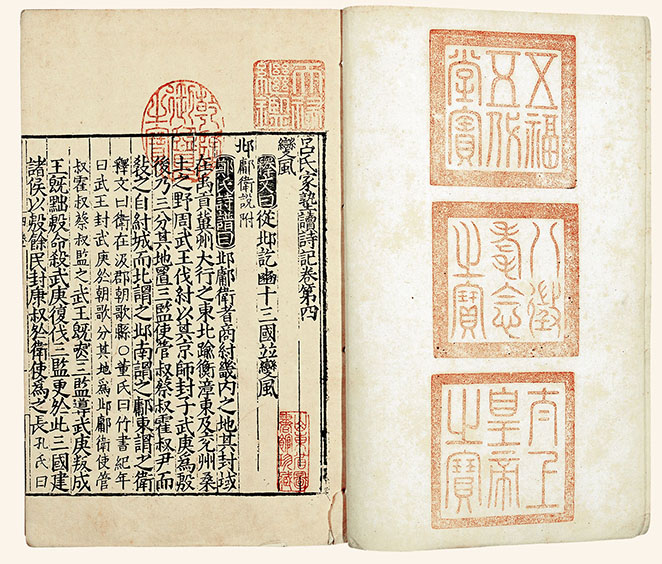 五福
五代
堂寶
八徵
耄念
之寶
太上
皇帝
之寶
天祿
繼鑑
乾隆
御覽
之寶
呂氏家塾讀詩記卷第四
變風
釋文曰從邶訖豳十三國並變風
邶鄘衛說附
鄭氏詩譜曰邶鄘衛者商紂畿內之地其封域
在禹貢冀州大行之東北踰衡漳東及兖州桑
土之野周武王伐紂以其京師封子武庚爲殷
後乃三分其地置三監使管叔蔡叔霍叔尹而
敎之自紂城而北謂之邶南謂之鄘東謂之衛
釋文曰衛在汲郡朝歌縣○董氏曰竹書紀年
曰武王封武庚於朝歌分其地爲邶鄘衛使管
叔霍叔蔡叔監之武王旣喪三監導武庚叛成
王旣黜殷命殺武庚復伐三監更於此三國建
諸侯以殷餘民封康叔於衛使爲之長孔氏曰